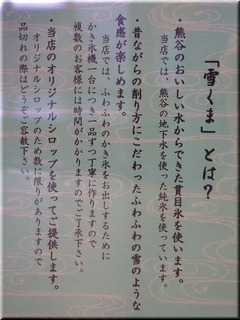 「雪くま」とは?
・熊谷のおいしい水からできた貫目氷を使います。
当店では、熊谷の地下水を使った純氷を使っています。
・昔ながらの削り方にこだわったふわふわの雪のような
食感が楽しめます。
当店では、ふわふわのかき氷をお出しするために
かき氷機一台につき一品ずつ丁寧に作りますので
複数のお客様には時間がかかりますのでご了承下さい。
・当店のオリジナルシロップを使ってご提供します。
オリジナルシロップのため数に限りがありますので
品切れの際はどうぞご容赦下さい。